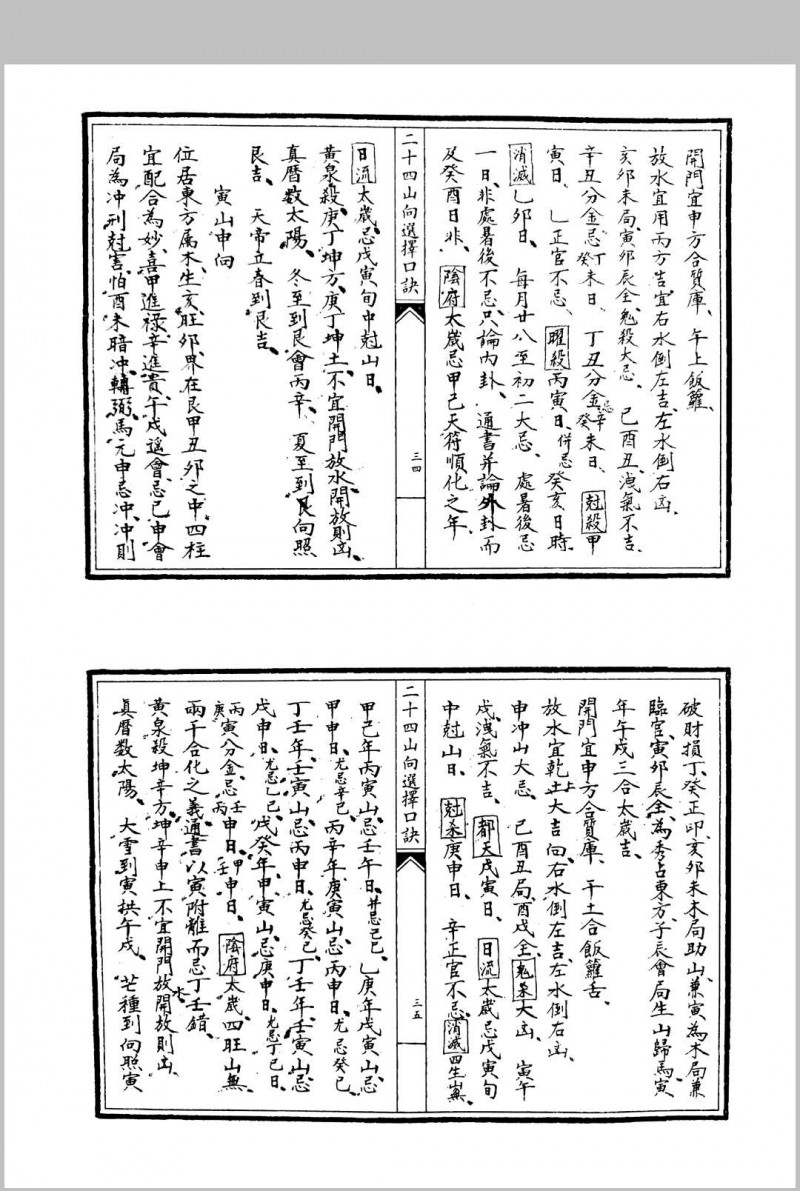 開門宜申方合質庫、午上飯籮、
放水宜用丙方吉宜右水倒左吉、左水倒右凶、
亥卯未局、寅卯辰全、鬼殺大忌、 己酉丑、洩氣不吉、
辛丑分金忌丁癸未日、 丁丑分金忌辛癸未日、 尅殺甲
寅日、乚正官不忌、 曜殺丙寅日、併忌癸亥日時、
消滅乚卯日、 每月廿八至初二大忌、 處暑後忌
一日、非處暑後不忌、只論內卦、 通書并論外卦而
及癸酉日非、 陰府太歲忌甲己天符順化之年、
二十四山向選擇口訣
三四
日流太歲忌戊寅旬中尅山日、
黃泉殺、庚丁坤方、庚丁坤土、不宜開門放水、開放則凶、
真曆数太陽、 冬至到艮會丙辛、 夏至到艮向照
艮吉、 天帝立春到艮吉、
寅山申向
位居東方属木、生亥、旺卯、界在艮甲丑卯之中、四柱
宜配合為妙、喜甲進禄、辛進貴、午戌遙會、忌己申會
局為冲刑尅害、怕酉未暗冲、輔弼、馬元申忌冲、冲則
破財損丁、癸正印、亥卯未木局助山、兼寅為木局兼
臨官、寅卯辰全、為秀占東方、子辰會局生山歸馬、寅
年午戌三合太歲吉、
開門宜申方合質庫、 干土合飯籮吉、
放水宜乾上大吉、向右水倒左吉、左水倒右凶、
申冲山大忌、 己酉丑局酉戌全、鬼杀大凶、 寅午
戌洩氣不吉、 都天戊寅日、 日流太歲忌戊寅旬
中尅山日、 尅杀庚申日、 辛正官不忌、消滅四生山無、
二十四山向選擇口訣
三五
甲己年丙寅山忌壬午日、并忌己巳、乚庚年戊寅山忌
甲申日、尤忌辛巳、 丙辛年庚寅山忌丙申日、尤忌癸巳、
丁壬年、壬寅山忌丙申日、尤忌癸巳、丁壬年、壬寅山忌
戊申日、尤忌乚巳、 戊癸年甲寅山忌庚申日、尤忌丁巳日、
丙庚寅分金、忌壬申日、甲壬申日、 陰府太歲四旺山無、
兩干合化之義、通書以寅附離而忌丁壬錯、
黃泉殺坤辛方、坤辛申上不宜開門放水、開放則凶、
真曆数太陽、 大雪到寅拱午戌、 芒種到向照寅